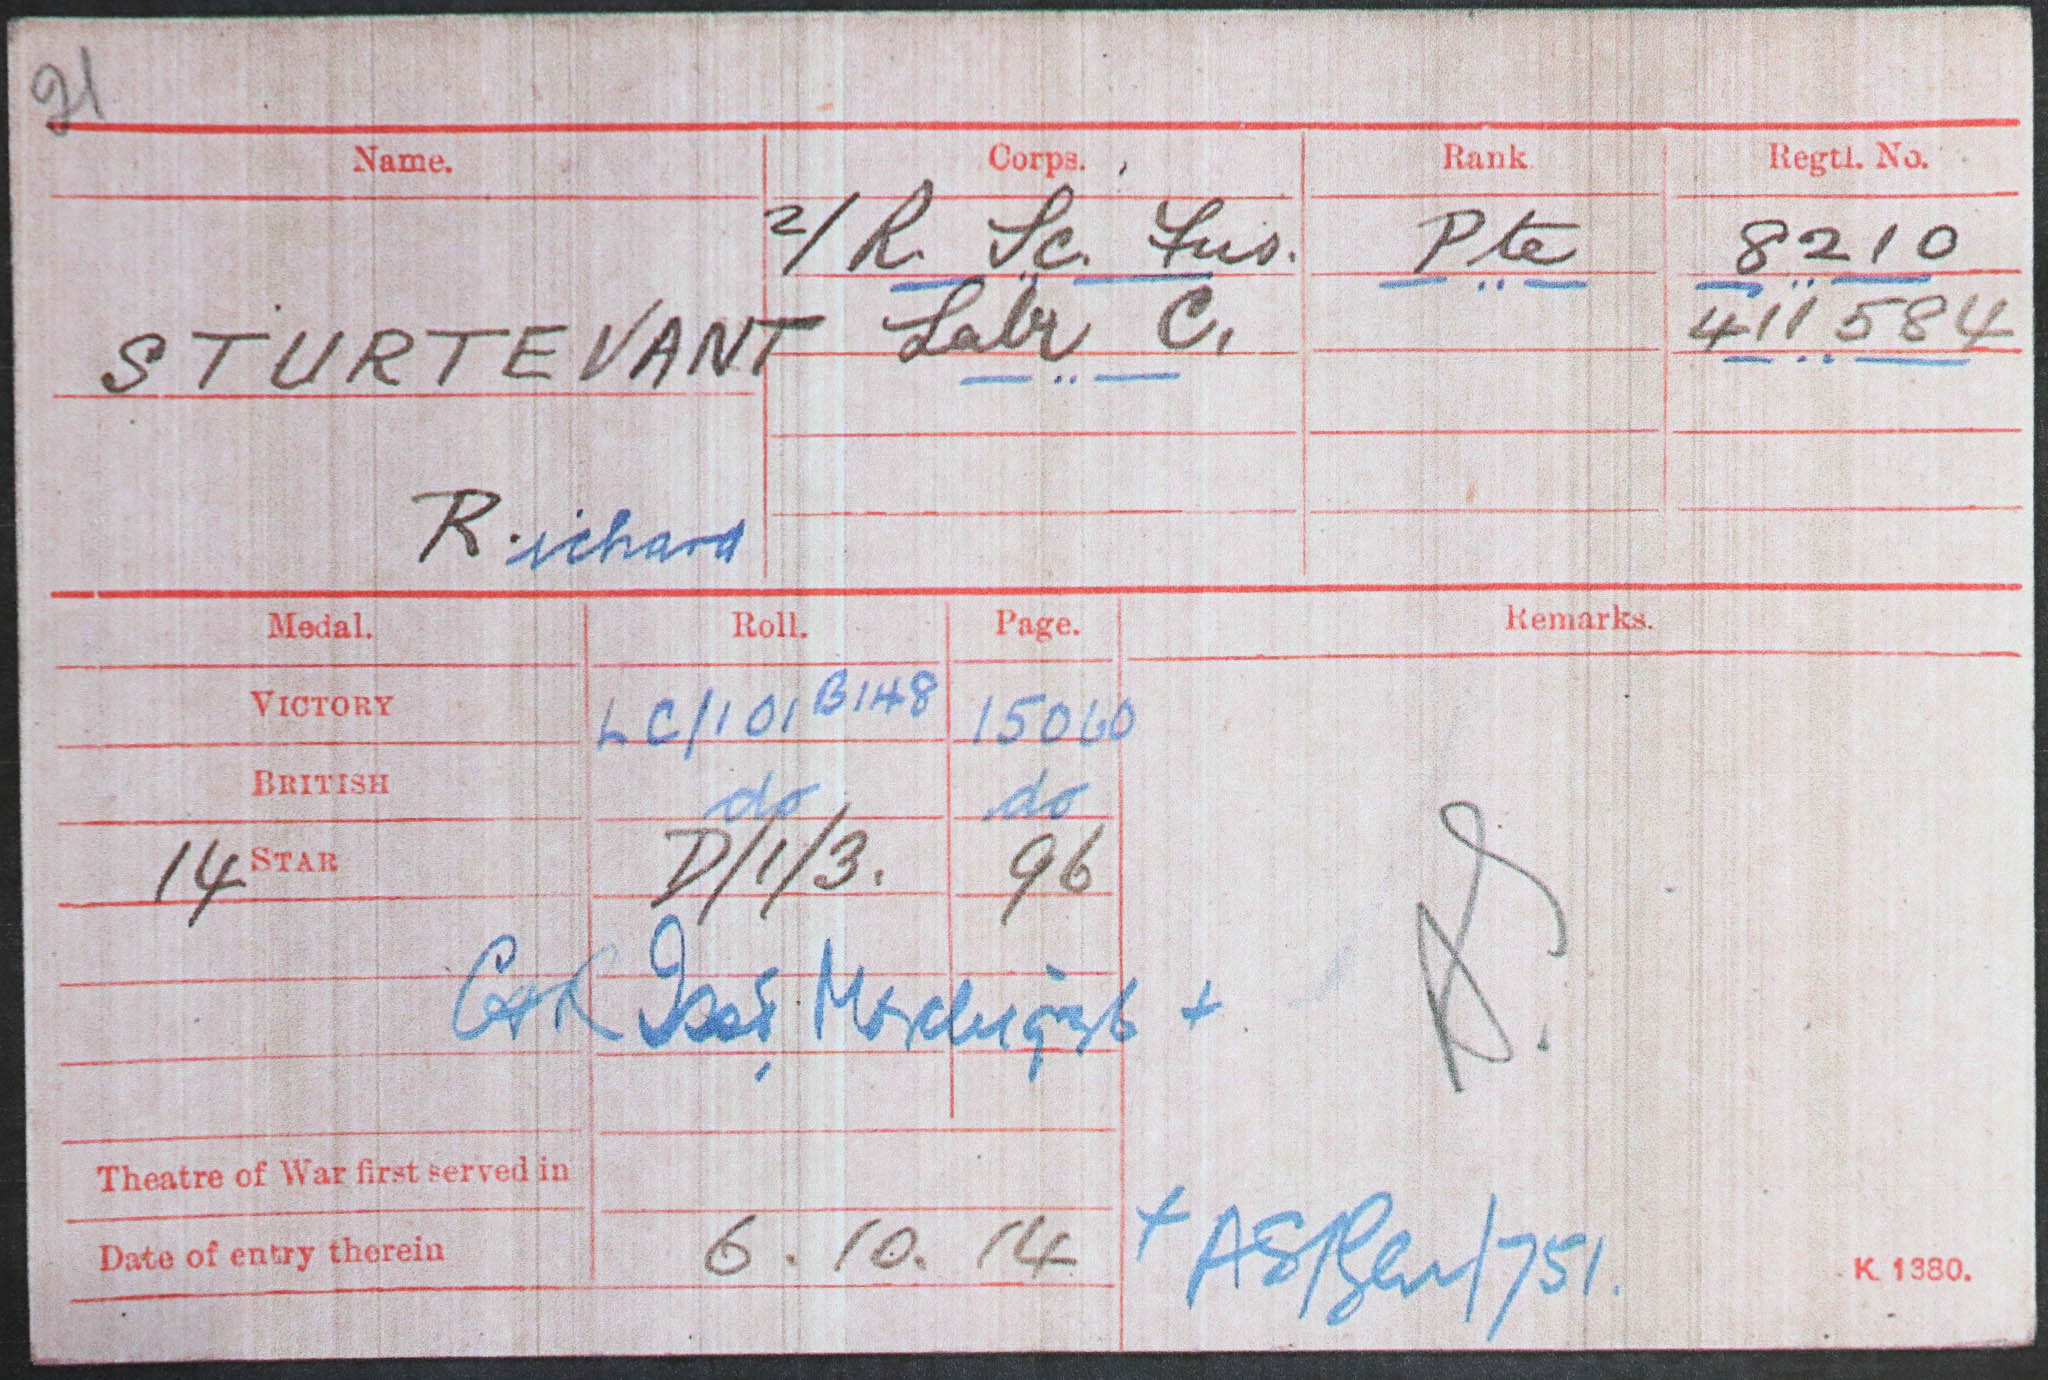 21
Name. Corps. Rank Regtl. No.
2/R. Sc. Fus. Pte 8210
STURTEVANT Labr C. 411584
Richard
Medal. Roll. Page. Remarks.
VICTORY LC/101 B148 15060
BRITISH do do
14 STAR D/1/3. 96
+
Theatre of War first served in
Date of entry therein 6. 10. 14
+ /751.
K 1380.